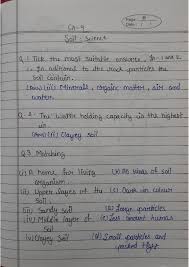 Page
Date
Ch-4
Soil : Science
Q.1 Tick the most suitable answers. In 1 and 2
1. In additions to the rock particles the
soil contain.
Ans (iii) Minerals, organic matter, air and
water.
Q-2 The water holding capacity in the highest
(Ans) (ii) Clayey Soil
Q3 Matching
(i) A home for living (b) All kinds of soil
organism
(ii) Upper layer of the (c) Dark in colour
soil.
(iii) Sandy soil (a) Large particles
(iv) Middle layer of (e) Less humus
soil
(v) Clayey Soil (d) Small particles and
packed tight